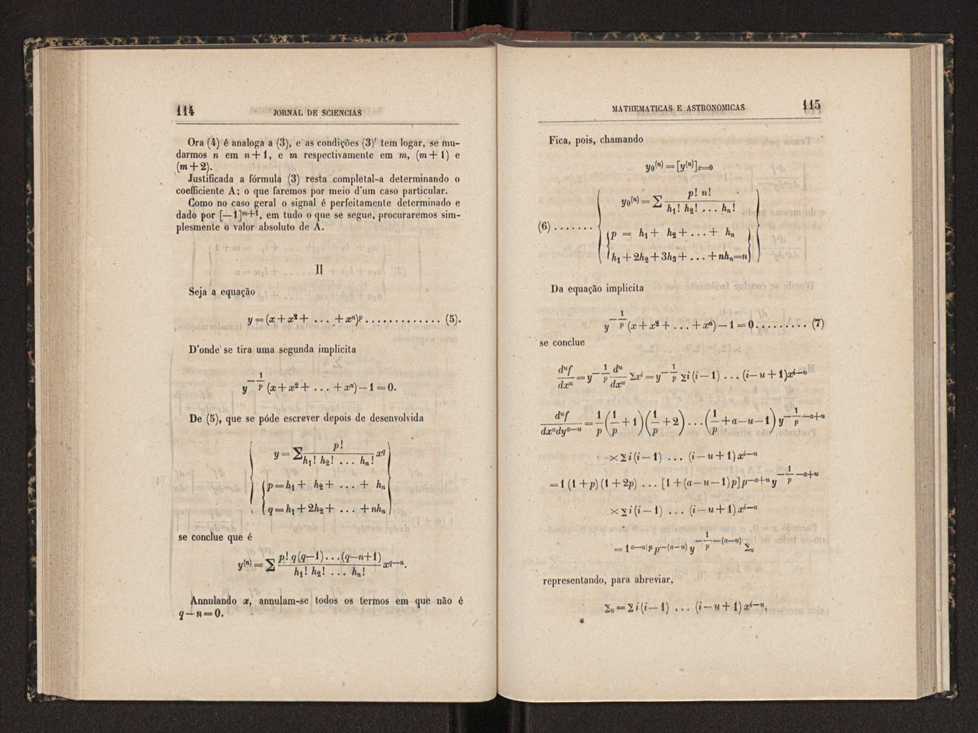 114 JORNAL DE SCIENCIAS
Ora (4) é analoga a (3), e as condições (3)' tem logar, se mu-
darmos n em n+1, e m respectivamente em m, (m+1) e
(m+2).
Justificada a fórmula (3) resta completal-a determinando o
coefficiente A; o que faremos por meio d'um caso particular.
Como no caso geral o signal é perfeitamente determinado e
dado por [—1]ᵐ⁺¹, em tudo o que se segue, procuraremos sim-
plesmente o valor absoluto de A.
II
Seja a equação
y=(x+x²+ ... +xⁿ)ᵖ............. (5).
D'onde se tira uma segunda implicita
y^{-1/p} (x+x²+ ... +xⁿ)—1=0.
De (5), que se póde escrever depois de desenvolvida
y=Σ p!/(h₁! h₂! ... hₙ!) x^q
p=h₁+ h₂+ ... + hₙ
q=h₁+2h₂+ ... +nhₙ
se conclue que é
y⁽ⁿ⁾=Σ p! q(q—1)...(q—n+1)/(h₁! h₂! ... hₙ!) x^{q—n}.
Annulando x, annulam-se todos os termos em que não é
q—n=0.
MATHEMATICAS E ASTRONOMICAS 115
Fica, pois, chamando
y₀⁽ⁿ⁾=[y⁽ⁿ⁾]ₓ₌₀
y₀⁽ⁿ⁾=Σ p! n!/(h₁! h₂! ... hₙ!)
(6) ....... p = h₁+ h₂+...+ hₙ
h₁+2h₂+3h₃+ ...+nhₙ=n
Da equação implicita
y^{-1/p} (x+x²+ ...+xⁿ)—1=0......... (7)
se conclue
dᵘf/dxᵘ=y^{-1/p} dᵘ/dxᵘ Σxⁱ=y^{-1/p} Σi(i—1) ... (i—u+1)x^{i—u}
dᵃf/dxᵘdy^{a—u}=1/p(1/p+1)(1/p+2)...(1/p+a—u—1)y^{-1/p—a+u}
×Σi(i—1) ... (i—u+1)x^{i—u}
=1(1+p)(1+2p) ... [1+(a—u—1)p]p^{—a+u}y^{-1/p—a+u}
×Σi(i—1) ... (i—u+1)x^{i—u}
=1^{a—u|p}p^{—(a—u)}y^{-1/p—(a—u)}Σᵤ
representando, para abreviar,
Σᵤ=Σi(i—1) ... (i—u+1)x^{i—u},
*